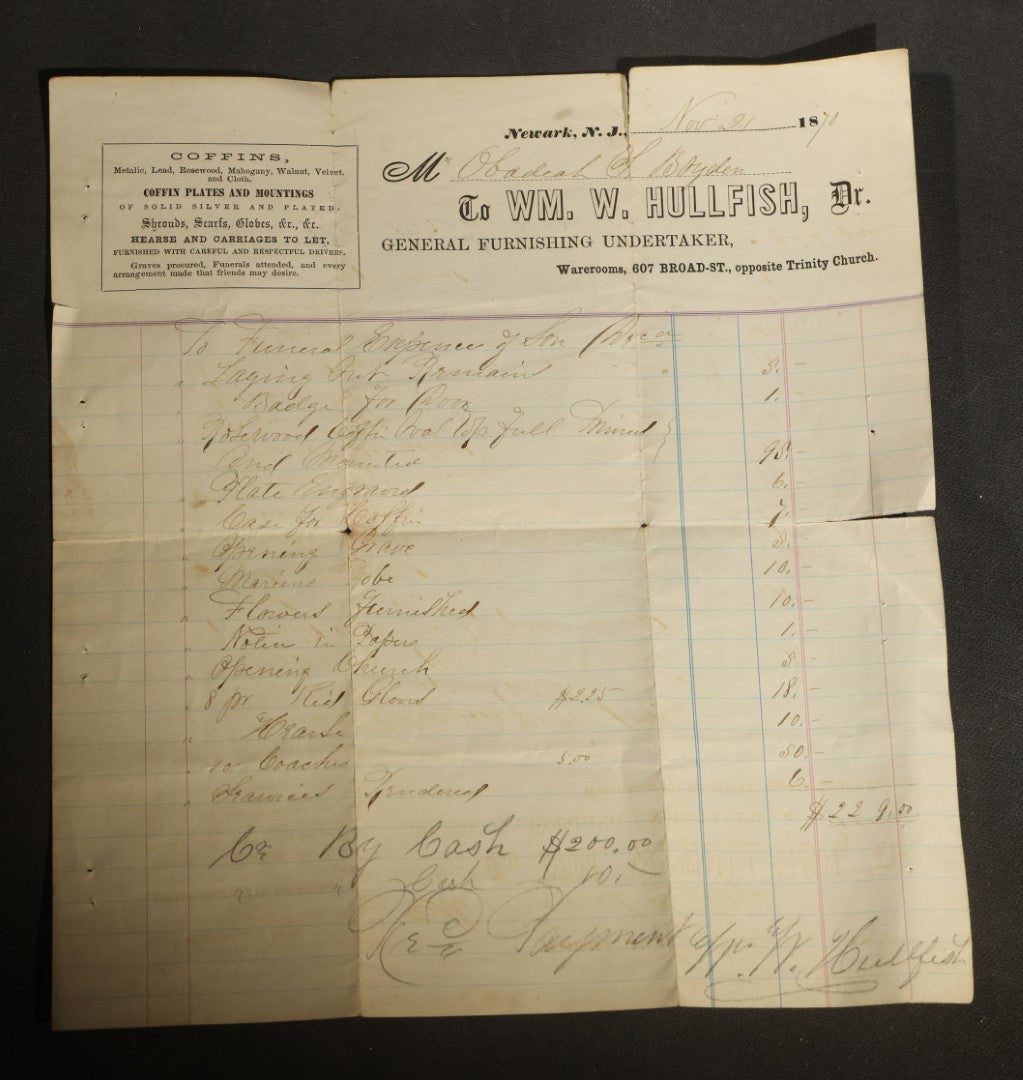 COFFINS,
Metalic, Lead, Rosewood, Mahogany, Walnut, Velvet,
and Cloth.
COFFIN PLATES AND MOUNTINGS
OF SOLID SILVER AND PLATED.
Shrouds, Scarfs, Globes, &c., &c.
HEARSE AND CARRIAGES TO LET,
FURNISHED WITH CAREFUL AND RESPECTFUL DRIVERS.
Graves procured, Funerals attended, and every
arrangement made that friends may desire.
Newark, N. J., Nov 21 1870
Mr Obadiah Boyden
To WM. W. HULLFISH, Dr.
GENERAL FURNISHING UNDERTAKER,
Warerooms, 607 BROAD-ST., opposite Trinity Church.
To Funeral Expence of Son
" Laying Out Remain 5.-
Badge for Door 1.-
" Rosewood Coffin Oval Top full Trimed }
And Mounted 95.-
" Plate Engraved 6.-
" Case for Coffin 7.-
" Opening Grave 5.-
" Robe 10.-
" Flowers Furnished 10.-
" Notice in Papers 1.-
" Opening Church 5.-
" 8 pr Kid Gloves $2.25 18.-
" Hearse 10.-
" 10 Coaches 5.00 50.-
" Rendered 6.-
$229.00
Cr By Cash $200.00
" " Cash 10.-
Payment W. Hullfish